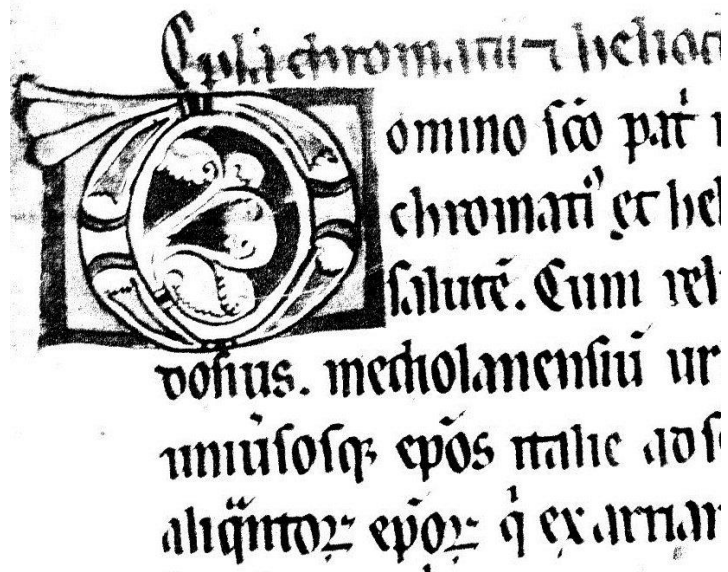 Epl̃a chromatii ⁊ heliod
Domino sc̃o pat̉
chromati᾽ et hel
salutẽ. Cum rel
dosius. mediolanensiũ ur
uniũsosq; ep̃os italie ad s
aliq̃ntoꝝ ep̃oꝝ q̉ ex arrian